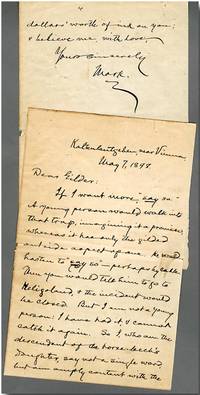 4
dollars' worth of ink on you;
& believe me, with love,
Yours sincerely
Mark.
Kaltenleutgeben, near Vienna,
May 7, 1898.
Dear Gilder:
If I want more, "say so."
A young person would walk into
that trap, imagining it a promise,
whereas it has only the gilded
outside aspect of one. He would
hasten to "say so" — perhaps by cable.
Then you would tell him to go to
Heligoland & the incident would
be closed. But I am not a young
person; I have had it, & cannot
catch it again. So I, who am the
descendant of the horse-leech's
daughter, say not a single word,
but am amply content with the